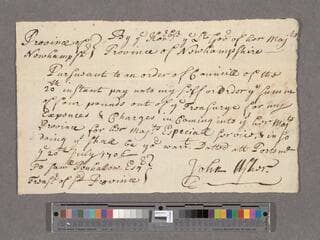 Province of } By yͤ Honᵇˡᵉ yͤ Lᵗ Govʳ of her Majᵗˢ
Newhampshᵉ } Province of Newhampshire
Pursuant to an order of Councill of the
20 instant pay unto my Self or Order yͤ summ
of four pounds out of yͤ Treasurye for my
Expences & Charges in Coming into yͤ her Majᵗˢ
Province for her Majᵗˢ Especial Service, & in so
doing yⁱˢ shall be yoʳ warᵗ. Datted att Portsmᵒ
yͤ 20ᵗʰ July 1706
To Samˡ Penhalow Esqʳ
Treasʳ of sᵈ Province
John Usher